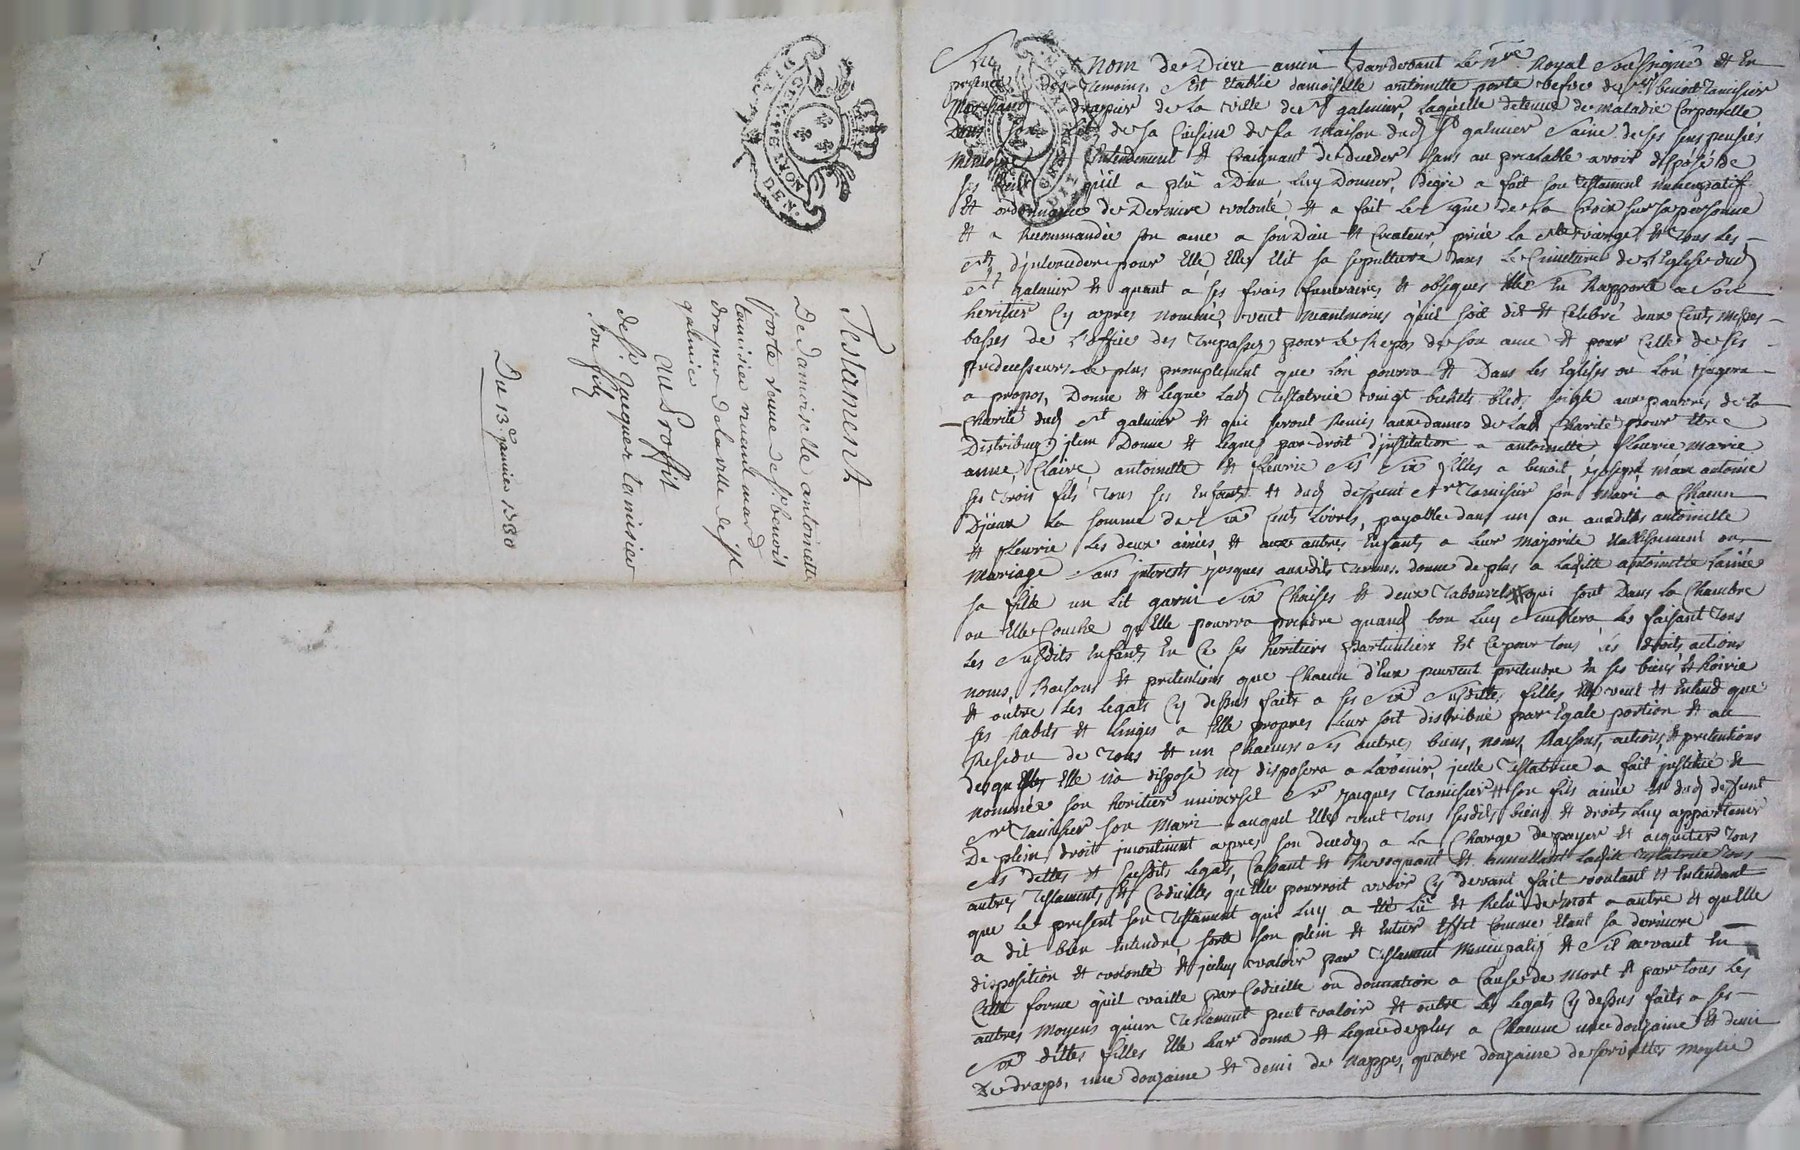 Testament
De damoiselle antoinette
porte veuve de Sr. benoit
tamisier vivant mard
drapier de la ville de St
galmier
Au Proffit
de Sr. Jacques tamisier
son fils
Du 13e janvier 1780
GEN. DE LYON
Nom de Dieu amen pardevant le Nre Royal Soussigné & En
presence des temoins, s'est Etablie damoiselle antoinette porte vefve de Sr benoit Tamisier
Marchand drappier de la ville de St galmier, Laquelle detenue de maladie Corporelle
Dans son Lit de sa Cuisine de sa Maison dud. St galmier Saine de ses sens pensées
Memoire & Entendement & Craignant de deceder sans au prealable avoir disposé de
ses biens qu'il a plû a Dieu Luy Donner, De gré a fait son Testament Nuncupatif
& ordonnance de Derniere volonté, & a fait le Signe de la Croix sur sa personne
& a Recommandée son ame a son Dieu & Createur, priée la Ste vierge & Tous les
Sts d'interceder pour Elle, Elle Elit sa sepulture dans le Cimetiere de l'Eglise dud.
St galmier & quant a ses frais funeraires & obseques Elle s'En Rapporte a Son
heritier Cy apres nommé, veut neantmoins qu'il soit dit & Celebré deux Cents Messes
basses de l'office des Trepassés pour le Repos de son ame & pour Celles de ses
predecesseurs le plus promptement que L'on pourra & Dans les Eglises ou L'on Jugera
a propos, Donne & Legue Lad. Testatrice vingt bichets bled seigle aux pauvres de la
Charité dud. St galmier & qui seront Remis aux dames de Lad. Charité pour Etre
Distribués, jtem Donne & Legue par droit d'jnstitution a antoinette fleurie marie
anne, Claire, antoinette & fleurie ses Six filles a benoit, joseph, Marc antoine
ses Trois fils Tous ses Enfants & dud. deffunt Sr Tamisier son Mari a Chacun
D'jceux la somme de Six Cents Livres, payable dans un an auxdites antoinette
& fleurie Les deux ainées, & aux autres Enfants a Leur Majorité Etablissement ou
Mariage Sans jnterests jusques auxdits termes. donne de plus a Ladite antoinette L'ainée
sa fille un Lit garni Six Chaises & deux Tabourets qui sont Dans la Chambre
ou Elle Couche qu'Elle pourra prendre quand bon Luy Semblera, Les faisant Tous
Les Susdits Enfants En Ce ses heritiers particuliers & Ce pour Tous les droits, actions
noms, Raisons & pretentions que Chacun d'Eux peuvent pretendre En ses biens & hoirie
& outre Les Legats Cy dessus faits a ses Six Susdittes filles Elle veut & Entend que
ses habits & Linges a Elle propres Leur soit distribué par Egale portion & au
Residu de Tous & un Chacuns ses autres biens, noms, Raisons, actions, & pretentions
desquels Elle n'a disposé ny disposera a L'avenir, jcelle Testatrice a fait jnstitué &
nommée son heritier universel Sr jacques Tamisier son fils ainé & dud. deffunt
Sr Tamisier son Mari auquel Elle veut Tous sesdits biens & droits Luy appartenir
De plein droit jncontinent apres son deceds a La Charge de payer & acquitter Tous
Ses dettes & susdits Legats, Cassant & Revoquant & annullant Ladite Testatrice Tous
autres Testaments & Codicilles qu'Elle pourroit avoir Cy devant fait voulant & Entendant
que le present son Testament qui Luy a Eté Lû & Relû de Mot a autre & qu'Elle
a dit bien Entendre sorte son plein & Entier Effet Comme Etant sa derniere
disposition & volonté & jcelluy valoir par Testament Nuncupatif & S'il ne vaut En
Cette forme qu'il vaille par Codicille ou donnation a Cause de Mort & par Tous Les
autres Moyens qu'un Testament peut valoir & outre Les Legats Cy dessus faits a ses
Six dittes filles Elle Leur donne & Legue de plus a Chacune une douzaine & demi
De draps, une douzaine & demi de Nappes, quatre douzaine de serviettes